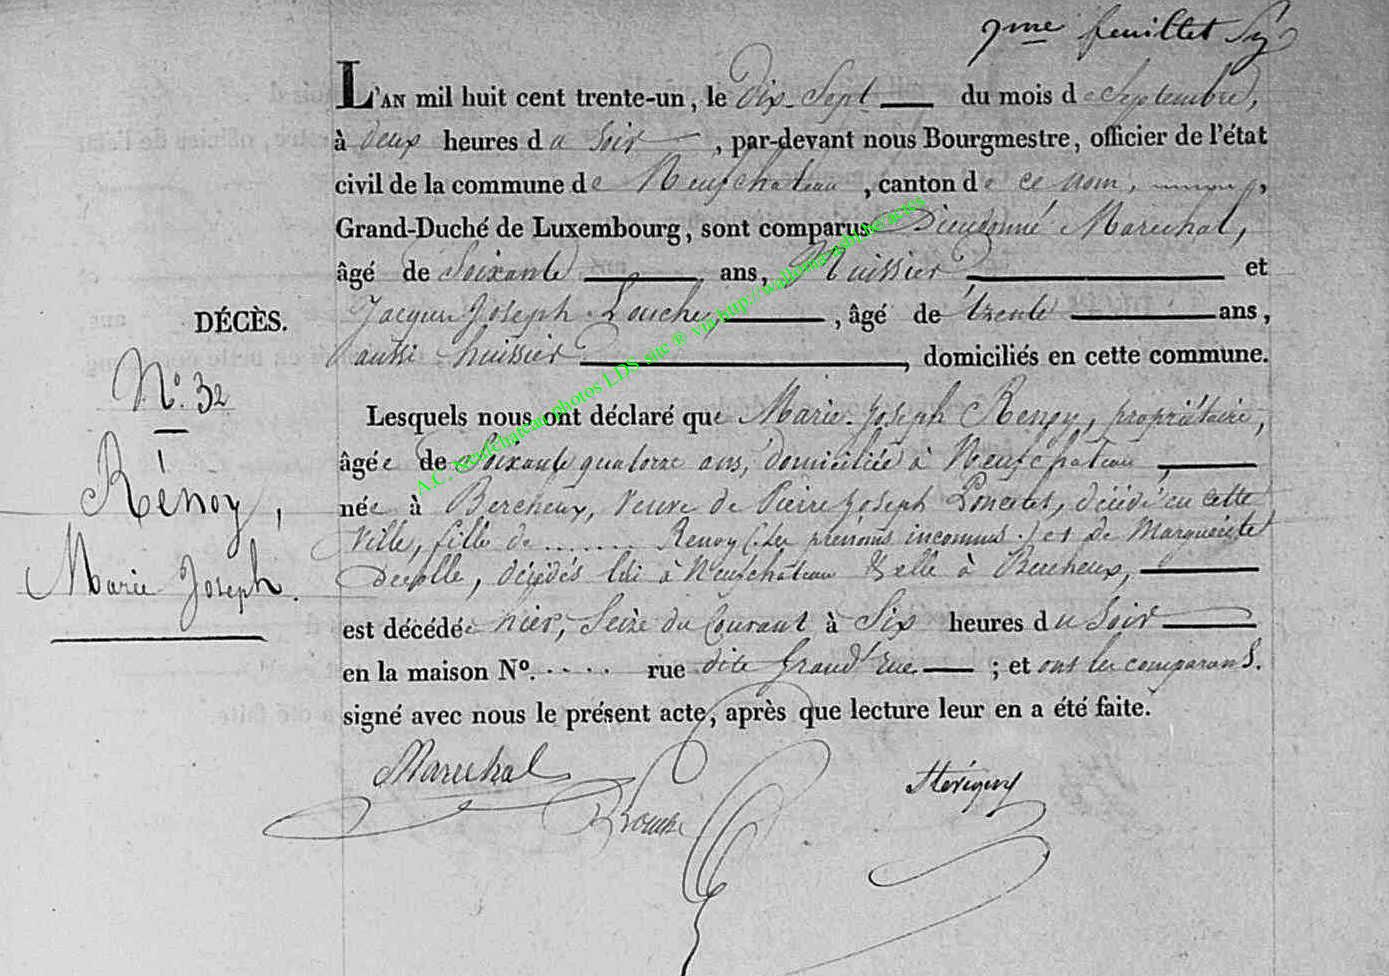 9me feuillet
L'AN mil huit cent trente-un, le dix-Sept du mois de Septembre,
à deux heures du Soir, par-devant nous Bourgmestre, officier de l'état
civil de la commune de Neufchateau, canton de ce nom,
Grand-Duché de Luxembourg, sont comparus Dieudonné Marechal,
âgé de Soixante ans, Huissier et
Jacques Joseph Louche, âgé de trente ans,
DÉCÈS.
aussi huissier, domiciliés en cette commune.
N°. 32
Lesquels nous ont déclaré que Marie-Joseph Renoy, propriétaire,
âgée de Soixante quatorze ans, domiciliée à Neufchateau,
Renoy,
née à Bercheux, Veuve de Pierre Joseph décédé en cette
Ville, fille de ....... Renoy (les prénoms inconnus.) et de Marguerite
Marie Joseph.
décédés lui à Neufchâteau & elle à Bercheux,
est décédée hier, Seize du Courant à Six heures du Soir
en la maison N°. .... rue dite Grand'rue ; et ont les comparans
signé avec nous le présent acte, après que lecture leur en a été faite.
Marechal
A.C. Neufchateau photos LDS site ® via http://wallonia-asbl.be/actes